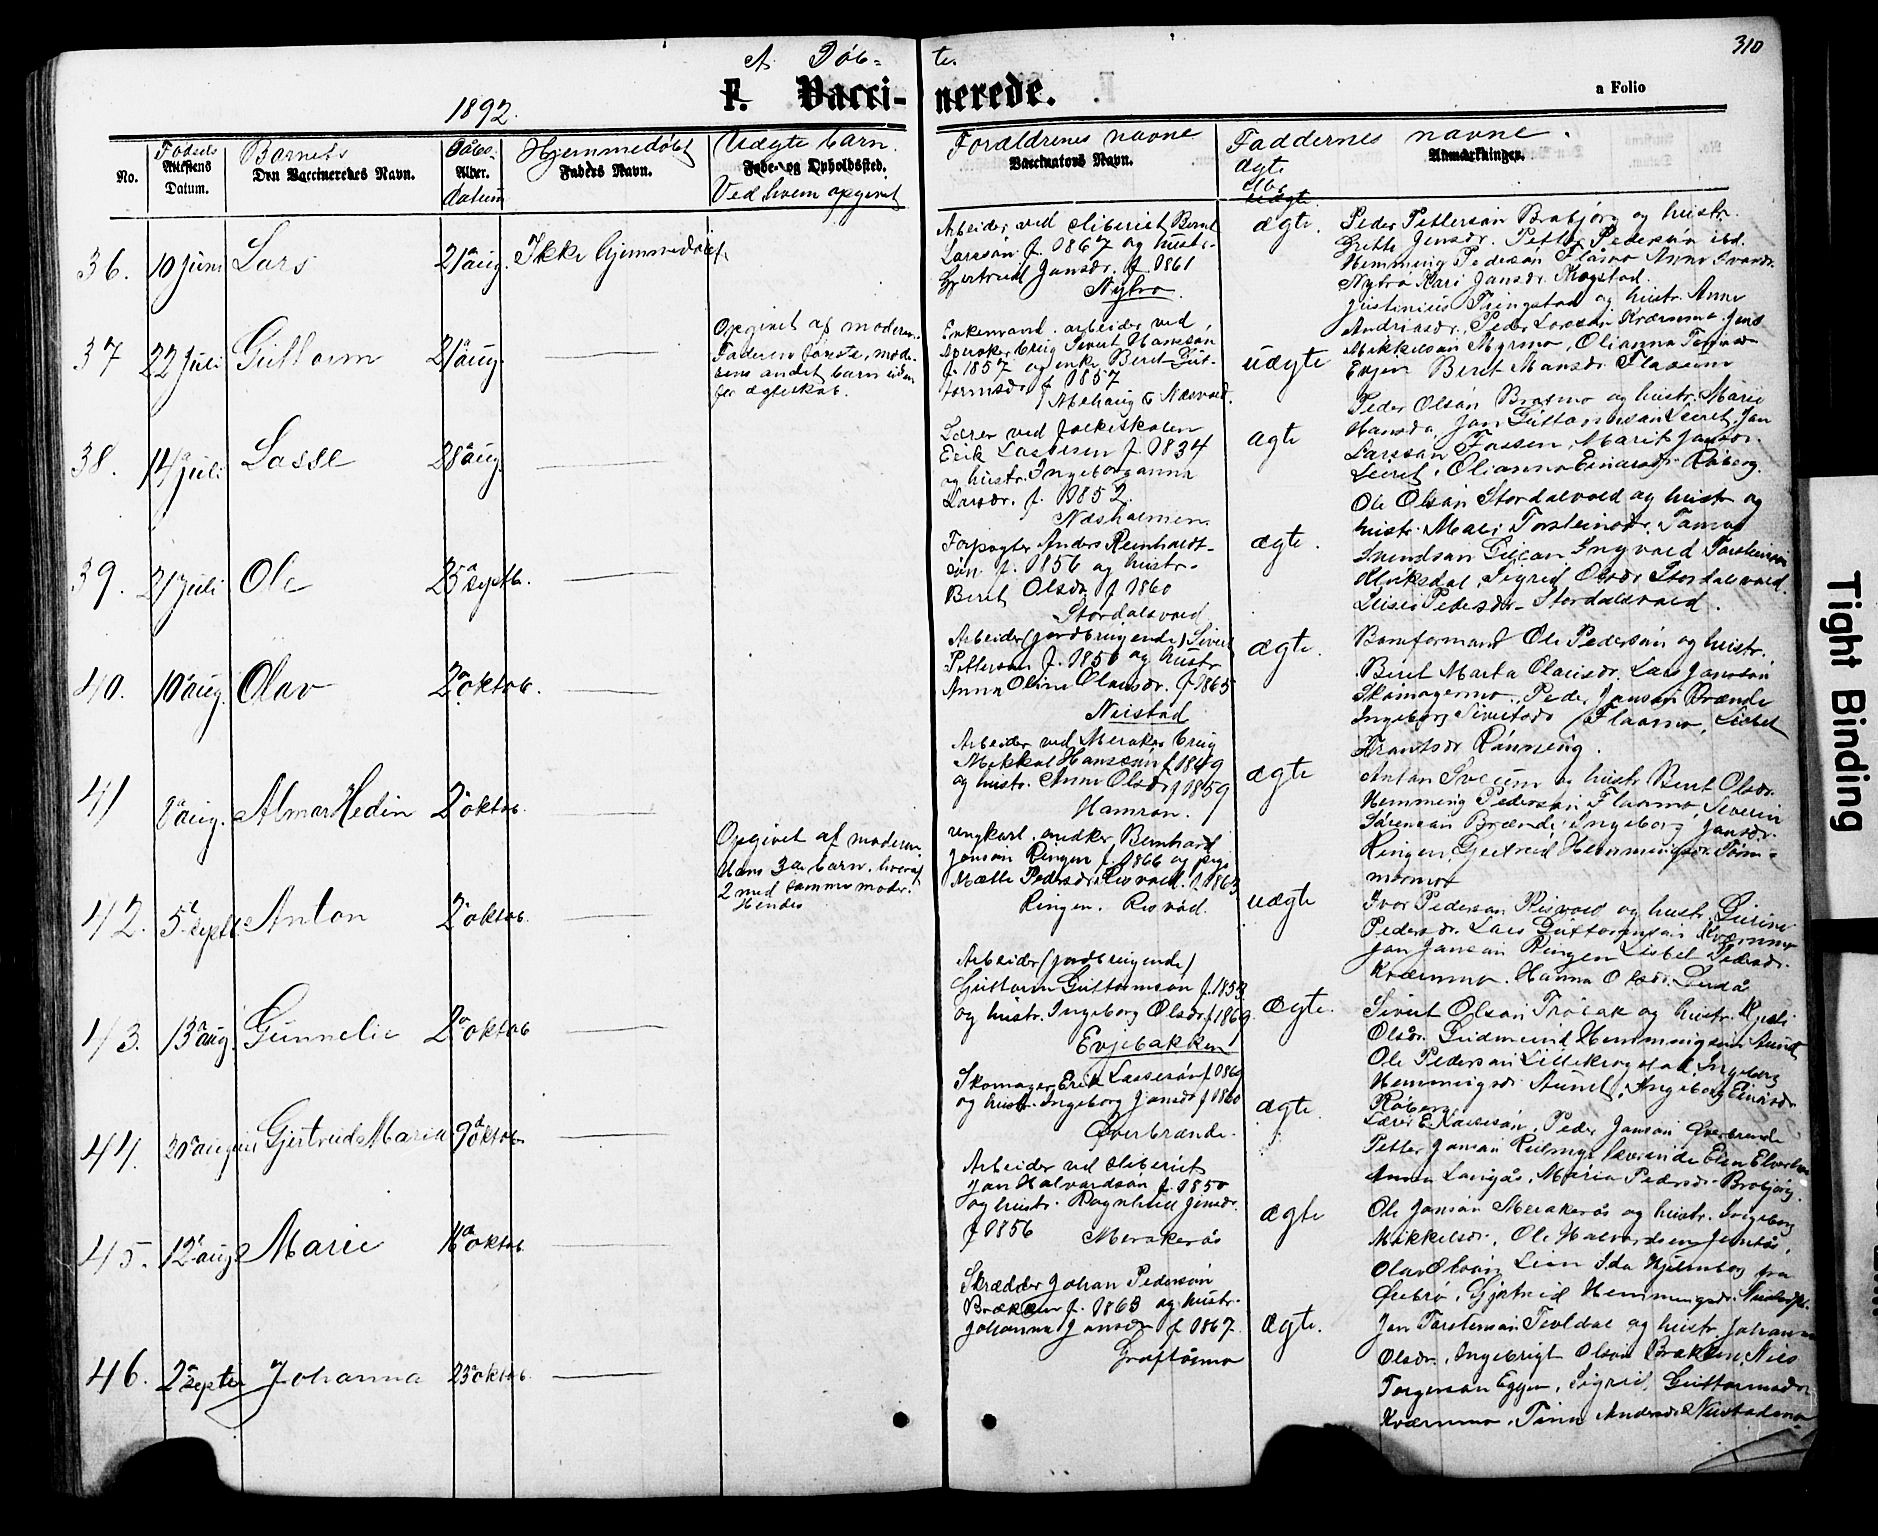 310
A. Döb- te.
F. Vacci- nerede.
a Folio
1892.
No.
Fødsels
Attestens
Datum.
Barnets
Den Vaccineredes Navn.
Döbs-
Alder.
datum
Hjemmedøbt
Faders Navn.
Uægte barn.
Føde- og Opholdssted.
Ved hvem opgivet
Forældrenes navne
Vaccinators Navn.
Faddernes navne.
Anmærkninger.
ægte
uægte
36. 10 juni Lars 21 aug. Ikke hjemmedøbt
Arbeider ved sliberiet Bernt
Larssøn f. 1867 og hustr.
Gjertrud Jansdr. f. 1861
Nybro.
ægte.
Peder Pettersøn Brobjørg og hustr.
Grette Jensdr. Petter Pedersøn ibd.
Hemming Pedersøn Flaamo Anne Ivarsdr.
Nybro Kari Jansdr. Krogstad.
37 22 juli Guttorm 21 aug.
Opgivet af moderen.
Faderens første, mode-
rens andet barn uden-
for ægteskab.
Enkemand. arbeider ved
Meraker brug Sivert Hanssøn,
f. 1857 og enke Beret Gut-
tormsdr. f 1857
Mehaug o Næsvold.
uægte
Justinius Ringstad og hustr. Anne
Andriasdr., Peder Larssøn Kværnmo. Jens
Mikkelsøn Myrmo, Olianna
Evjen Beret Hansdr. Flaamo
38. 14 juli Lasse 28 aug.
Lærer ved folkeskolen
Erik Lassesen f. 1834
og hustr. Ingeborganna
Larsdr. f. 1852.
Næsholmen.
ægte
Peder Olsøn Brosmo og hustr. Marie
Hansdr, Jon Guttormsøn Leiret, Jon
Larssøn Fossen, Marit Jonsdr.
Leiret, Olianna Einarsdr. Roberg.
39. 21 juli Ole 25 septb.
Forpagter Anders Reinhardt-
søn f. 1856 og hustr.
Beret Olsdr. f 1860
Stordalsvold
ægte.
Ole Olsøn Stordalsvold og hustr og
hustr. Mali Torsteinsdr. Tomas
Svendsøn Ingvald Torsteinsøn
Sigrid Olsdr. Stordalsvold.
Lisie Pedersdr. Stordalsvold.
40. 10 aug. Olav 2 oktob.
Arbeider (jordbrugende) Sivert
Pettersøn f. 1856 og hustr
Anna Oline Olausdr. f 1865
Neistad
ægte.
Bomformand Ole Pedersøn og hustr.
Beret Marta Olausdr. Lars Janssøn
Skomagermo, Peder Jonsøn Brænde
Ingeborg Sivertsdr Flaamo, Lisbet
Frantsdr Rønning.
41 8 aug. Almar Hedin 2 oktob.
Arbeider ved Meraker brug
Mikkel Hanssøn f. 1849
og hustr. Anne Olsdr. f 1859
Hamran.
ægte
Anton og hustr. Beret Olsdr.
Hemming Pedersøn Flaamo, Severin
Sørensøn Brænde, Ingeborg Jonsdr.
Ringen, Gjertrud Hemmingsdr. Tøm-
mermo
42. 5 septb. Anton 2 oktob.
Opgivet af moderen.
Hans 3die barn, hvoraf
2 med samme moder.
Hendes
Ungkarl, snedker Bernhard
Jonsøn Ringen f. 1866 og pige
Mette Pedersdr. Risvold. f. 1863
Ringen. Risvold.
uægte
Ivar Pedersøn Risvold og hustr. Gurine
Pedersdr. Lars Guttormsøn Kværnmo
Jon Jonsøn Ringen Lisbet Pedersdr.
Kværnmo. Hanna Olsdr. Lerdå
43. 13 aug. Gunnelie 2 oktob
Arbeider (jordbrugende)
Guttorm Guttormsøn f. 1853
og hustr. Ingeborg Olsdr. f 1869
Evjebakken
ægte.
Sivert Olsøn Tröaak og hustr. Kjesti
Olsdr. Gudmund Hemmingsøn Aunet
Ole Pedersøn Lillekrogstad. Ingeborg
Hemmingsdr. Aunet. Ingeborg Einarsdr.
Roberg.
44. 30 Gjertrud Maria 9 oktob
Skomager Erik Lassesøn f. 1860
og hustr. Ingeborg Jonsdr f 1860
Øverbrænde.
ægte.
Lærer E. Lassesøn, Peder Jonsøn Øverbrænde
Petter Jonsøn Elen
Anna Langås, Maria Pedersdr. Brobjørg.
45. 12 aug Marie 16 oktob.
Arbeider ved sliberiet
Jon Halvardsøn f. 1850
og hustr. Ragnhild Jonsdr.
f 1856 Merakerås
ægte
Ole Jonsøn Merakerås og hustr. Ingeborg
Mikkelsdr. Ole Halvordsen
Olav Olsøn Lien Ida Hjelmberg fra
Örebro, Gjertrud Hemmingsdr.
46. 2 septbr Johanna 23 oktob.
Skrædder Johan Pedersøn
Brækken f. 1863 og hustr.
Johanna Jonsdr f 1867.
Graftåsmo
ægte.
Jon Torstensøn Tevldal og hustr. Johanna
Olsdr., Ingebrigt Olsøn Brækken, Nils
Torgersøn Eggen, Sigrid Guttormsdr.
Kværnmo. Tina Andersdr. Neistadmo.
Tight Binding